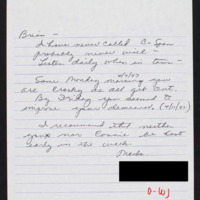 Brian -
I have never called C-Span
probably never will -
Listen daily when in town -
4/2/07
Some Monday morning you
are cranky as all get out.
By Friday you seemed to
improve your demeanor (4/6/07)
I recommend that neither
you nor Connie be host
early in the week.
O-WJ